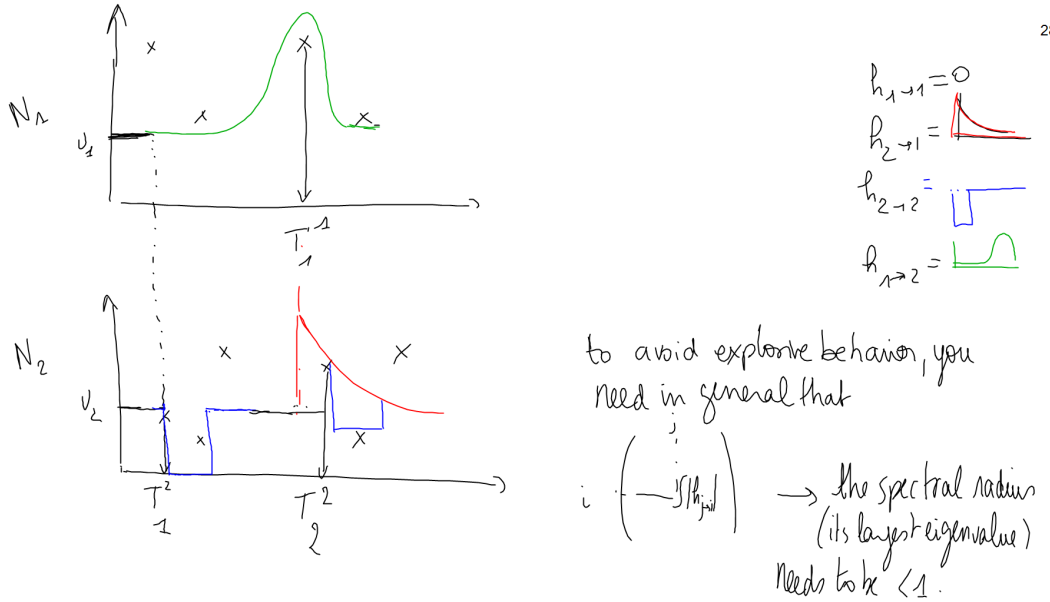 28
N₁
ν₁
T₁¹
N₂
ν₂
T₁²
T₂²
h₁→₁ = 0
h₂→₁ =
h₂→₂ =
h₁→₂ =
to avoid explosive behavior, you
need in general that
j
i ( ∫|h_{j→i}| ) → the spectral radius
(its largest eigenvalue)
needs to be < 1.